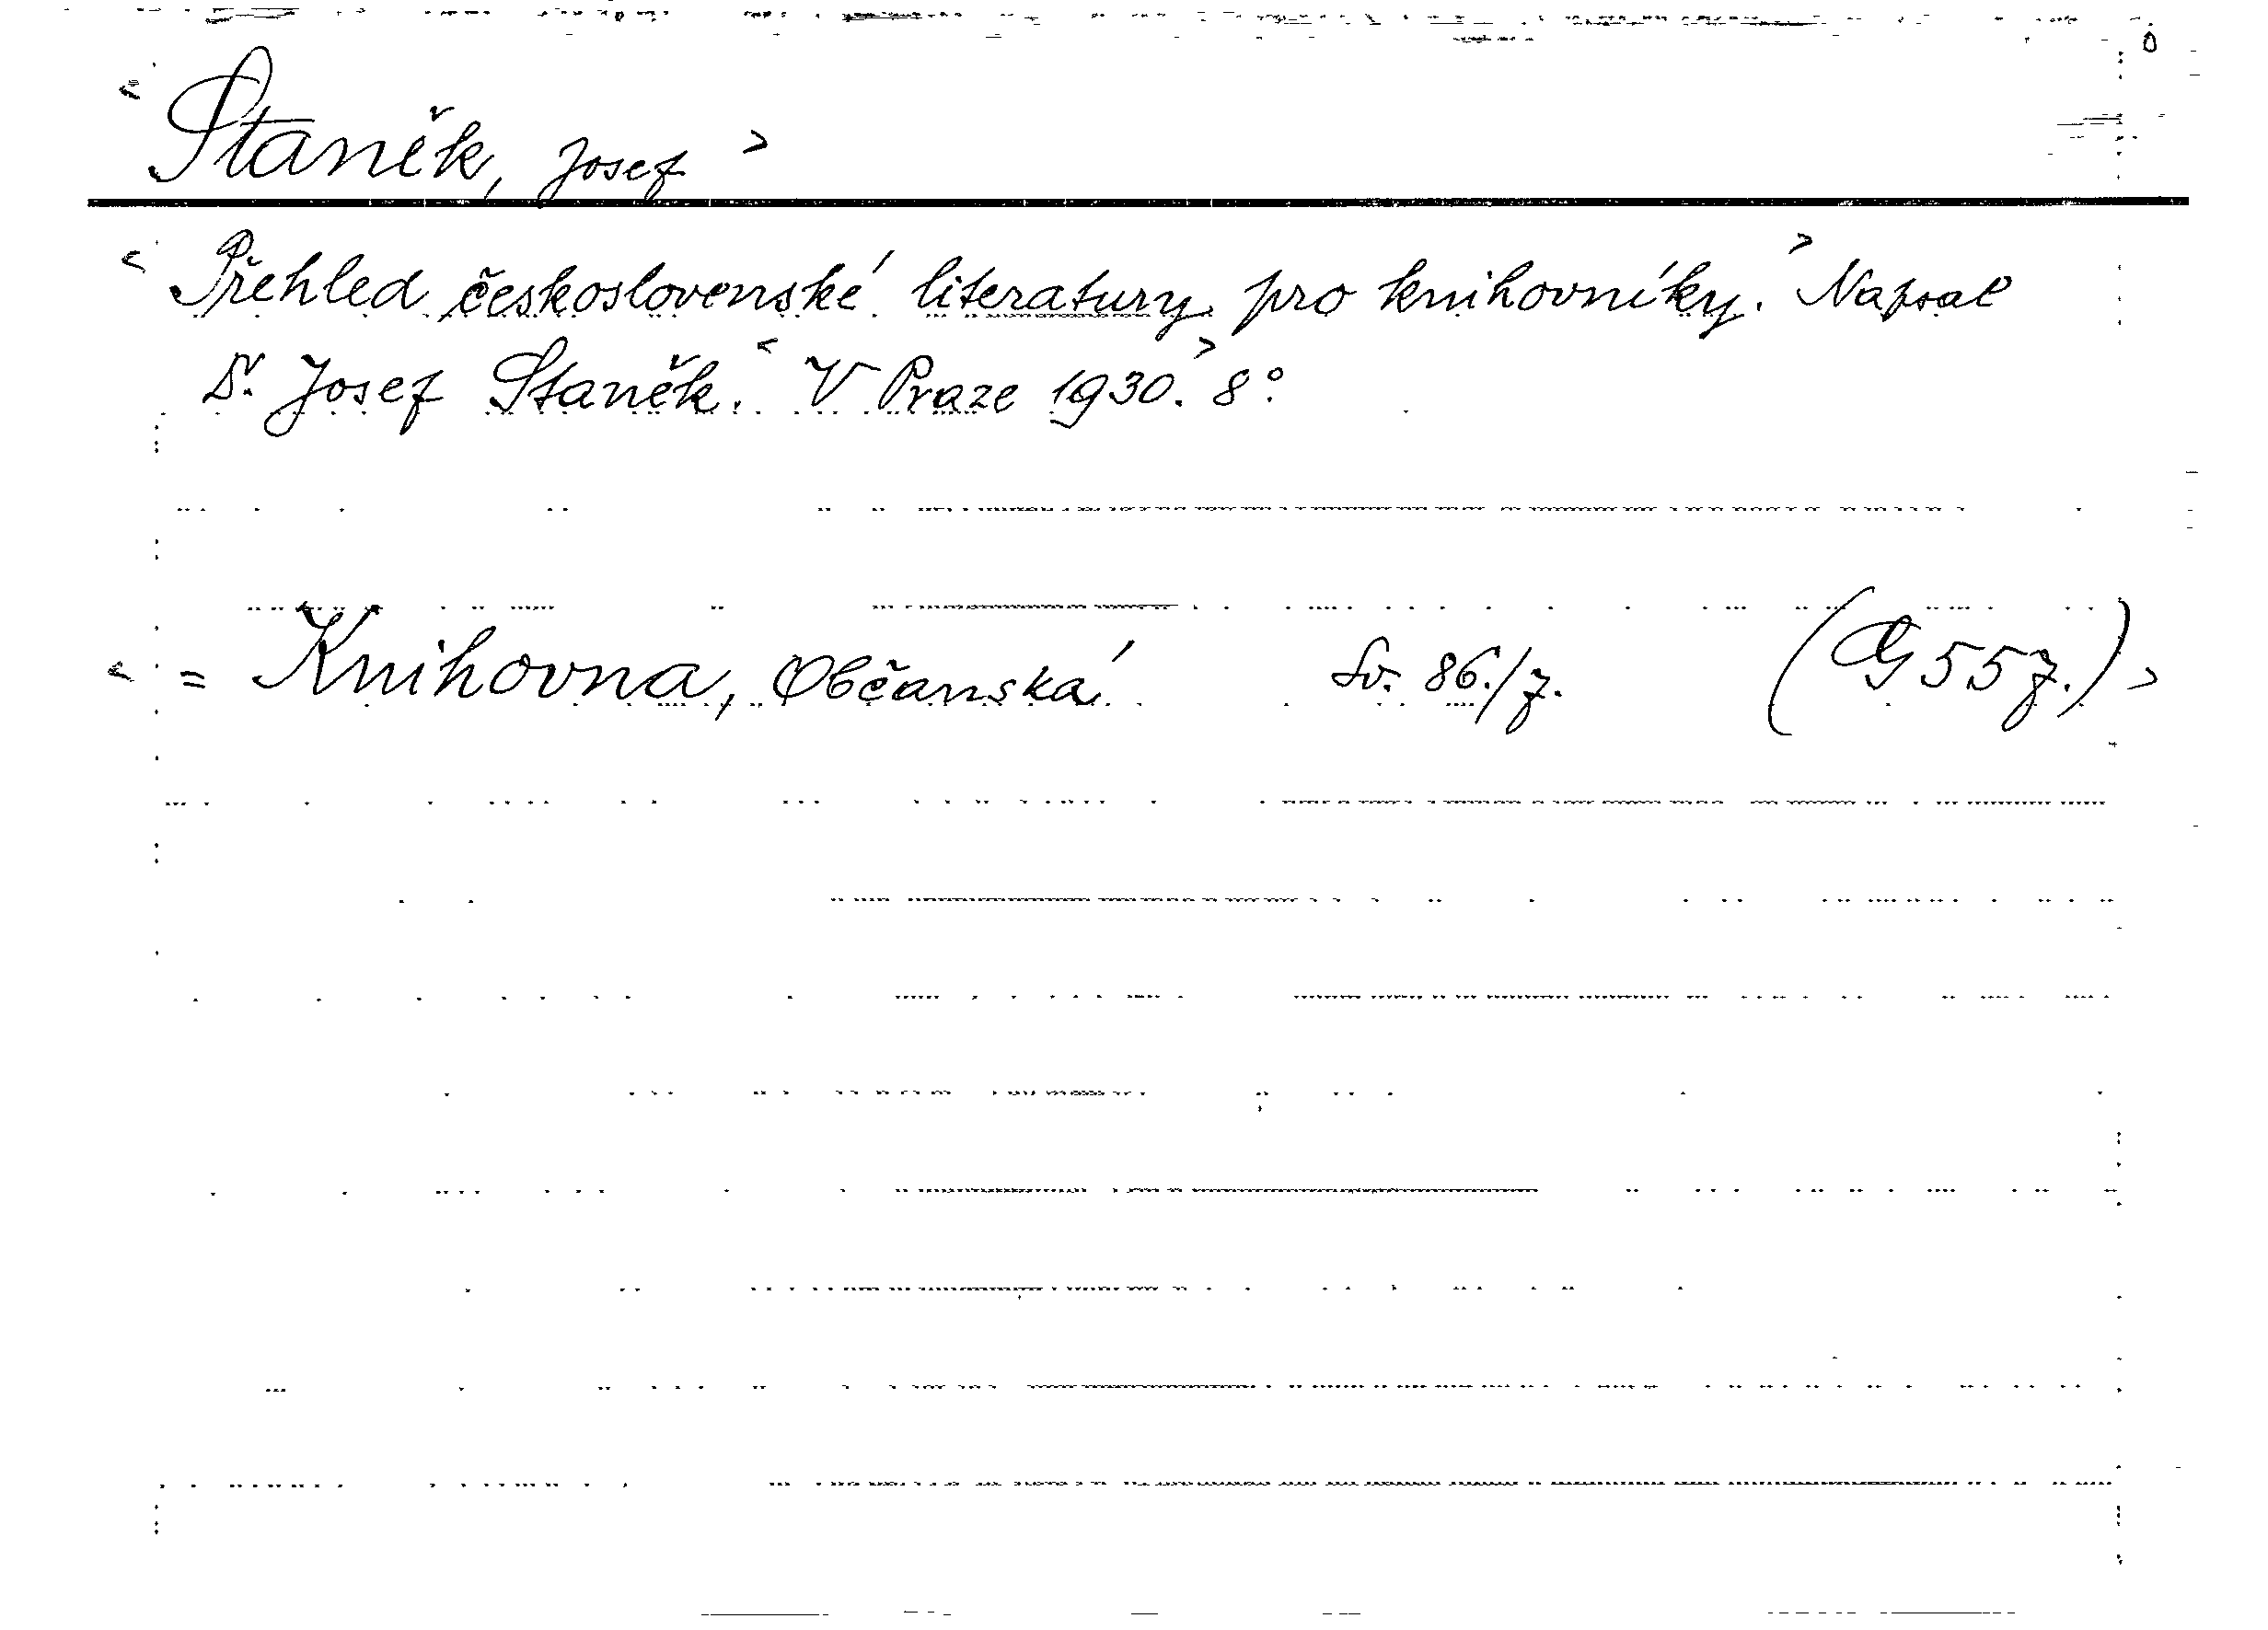 < Staněk, Josef >
< Přehled československé literatury pro knihovníky. > Napsal
Dr. Josef Staněk. < V Praze 1930. > 8°.
< = Knihovna, Občanská Sv. 86./7. (G 557.) >